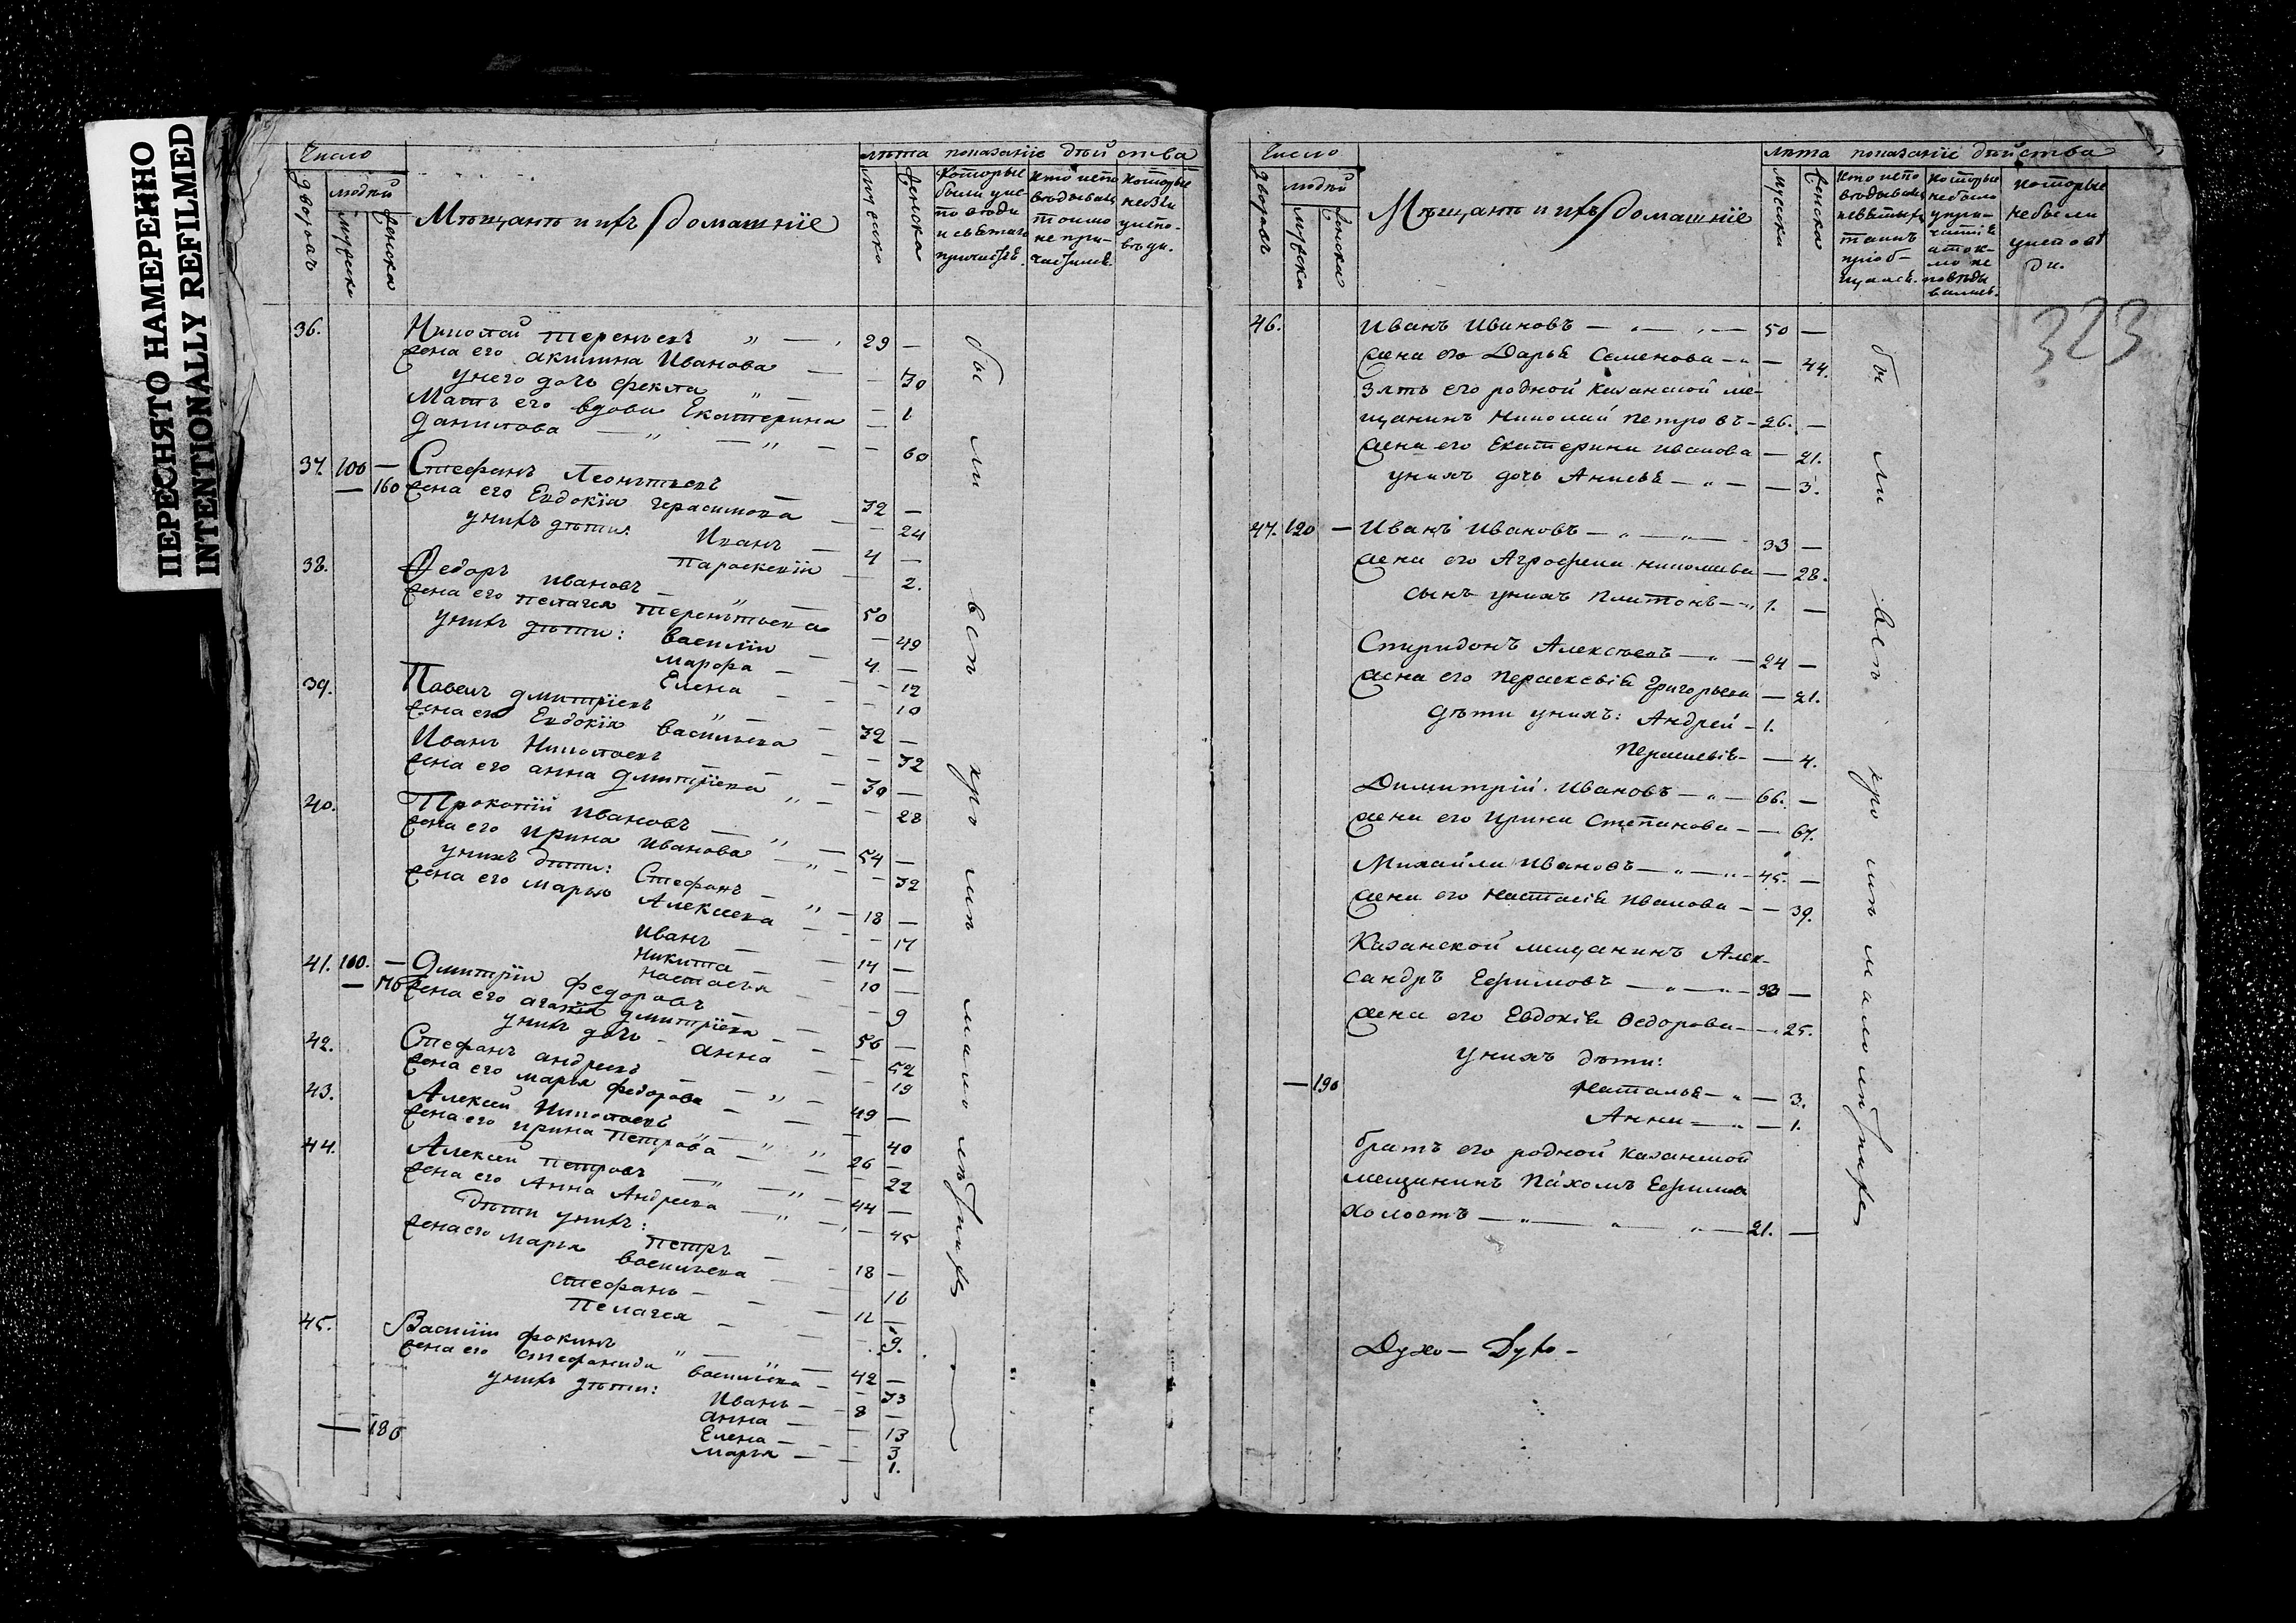 ПЕРЕСНЯТО НАМЕРЕННО
INTENTIONALLY REFILMED
Число
людей
дворовъ
мужска
женска
Мѣщанъ и ихъ домашніе
лѣта показаніе дѣйства
мужско
женска
Которые были у исповѣди и святаго причастія.
Кто исповѣдывались токмо не причастились.
Которые не были у исповѣди.
36. Николай Терентьевъ 29 —
жена его Акилина Иванова — 30
у него дочь Фекла — 1
Мать его вдова Екатерина
Данилова — 60
37. 100 — Стефанъ Леонтьевъ 32 —
— 160 жена его Евдокія Герасимова — 24
у нихъ дѣти: Иванъ 4 —
Параскевія — 2.
38. Федоръ Ивановъ 50
жена его Пелагея Терентьева — 49
у нихъ дѣти: Василіи 4. —
Марфа — 12
Елена — 10
39. Павелъ Дмитріевъ 32 —
жена его Евдокія Васильева — 32
Иванъ Николаевъ 30 —
жена его Анна Дмитріева — 28
40. Прокопій Ивановъ 54 —
жена его Ирина Иванова — 52
у нихъ дѣти: Стефанъ 18 —
жена его Марья Алексеева — 17
Иванъ 14 —
Никита 10 —
Настасья — 9
41. 100. — Дмитріи Федоровъ 56 —
— 170 жена его Агафія Дмитріева — 52
у нихъ дочь Анна — 19
42. Стефанъ Андреевъ 49 —
жена его Марья Федорова — 40
43. Алексеи Николаевъ 26 —
жена его Ирина Петрова — 22
44. Алексеи Петровъ 44 —
жена его Анна Андреева — 45
Дѣти у нихъ: Петръ 18 —
жена его Марья Васильева — 16
Стефанъ 12 —
Пелагея — 9.
45. Василіи Фокинъ 42 —
жена его Стефанида Васильева — 33
у нихъ дѣти: Иванъ 8 —
Анна — 13
Елена — 3
— 180 Марья — 1.
были всѣ кромѣ малолѣтнихъ
Число
людей
дворовъ
мужска
женска
Мѣщанъ и ихъ домашніе
лѣта показаніе дѣйства
мужска
женска
которые не были у исповѣди.
323
46. Иванъ Ивановъ — 50 —
жена его Дарья Семенова — 44.
Зять его родной Казанской ме-
щанинъ Николай Петровъ — 26. —
жена его Екатерина Иванова — 21.
у нихъ дочь Анисья — 3.
47. 120 — Иванъ Ивановъ — 33 —
жена его Агрофена Николаева — 28.
сынъ у нихъ Платонъ — 1. —
Спиридонъ Алексѣевъ — 24 —
жена его Пераскевія Григорьева — 21.
дѣти у нихъ: Андрей — 1.
Пераскевія — 4.
Димитрій Ивановъ — 66. —
жена его Ирина Степанова — 67.
Михайла Ивановъ — 45. —
жена его Настасія Иванова — 39.
Казанской мещанинъ Алек-
сандръ Ефимовъ — 33 —
жена его Евдокія Федорова — 25.
у нихъ дѣти:
— 190 Наталья — 3.
Анна — 1.
братъ его родной Казанской
мещанинъ Пахомъ Ефимовъ
холостъ — 21. —
были всѣ кромѣ малолѣтнихъ
Духо — Духо —